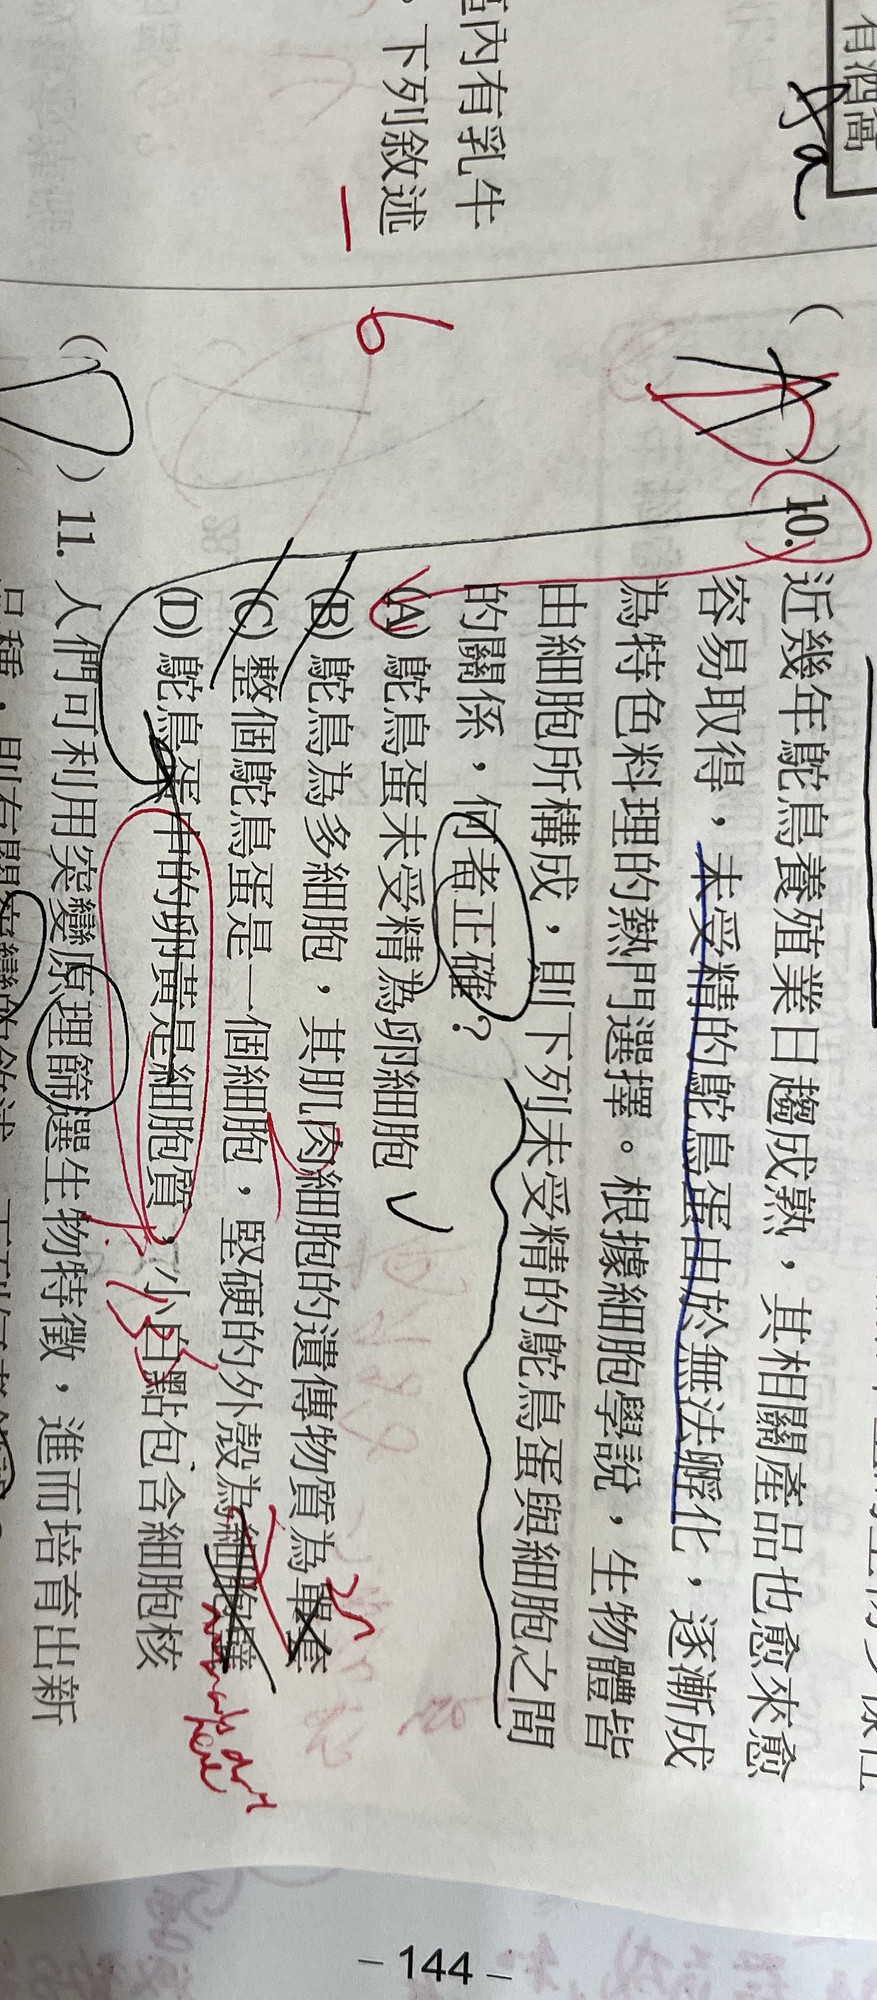 有酒窩
Aa
區內有乳牛
。下列敘述
6
( ) 10. 近幾年鴕鳥養殖業日趨成熟，其相關產品也愈來愈
容易取得，未受精的鴕鳥蛋由於無法孵化，逐漸成
為特色料理的熱門選擇。根據細胞學說，生物體皆
由細胞所構成，則下列未受精的鴕鳥蛋與細胞之間
的關係，何者正確？
(A) 鴕鳥蛋未受精為卵細胞
(B) 鴕鳥為多細胞，其肌肉細胞的遺傳物質為單套
(C) 整個鴕鳥蛋是一個細胞，堅硬的外殼為細胞壁
(D) 鴕鳥蛋中的卵黃是細胞質，小白點包含細胞核
( ) 11. 人們可利用突變原理篩選生物特徵，進而培育出新
– 144 –